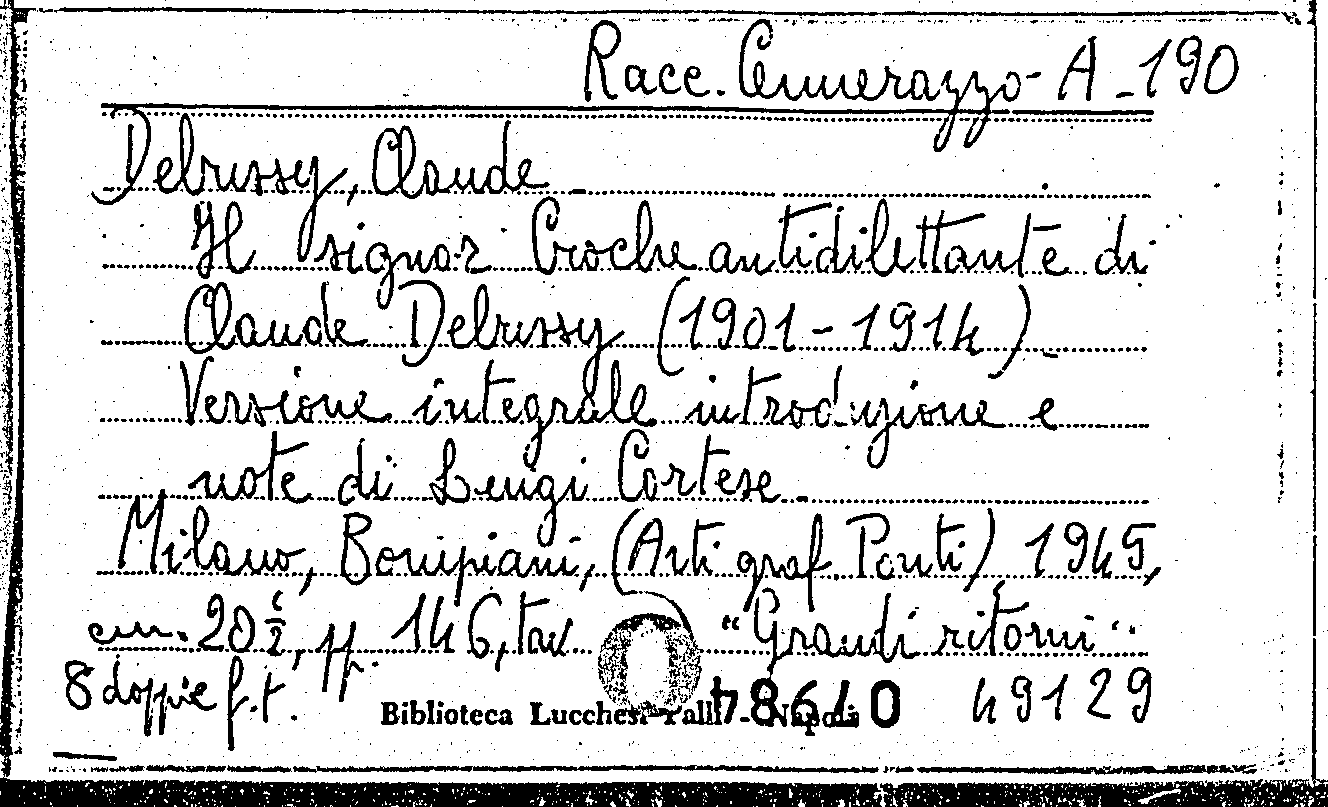 Racc. Cennerazzo - A - 190
Debussy, Claude
Il signor Croche antidilettante di
Claude Debussy (1901 - 1914).
Versione integrale introduzione e
note di Luigi Cortese.
Milano, Bompiani, (Arti graf. Ponti) 1945,
cm. 20 ½, pp. 146, tav. "Grandi ritorni"
8 doppie f. t.
49129
Biblioteca Lucchesi Palli - Napoli